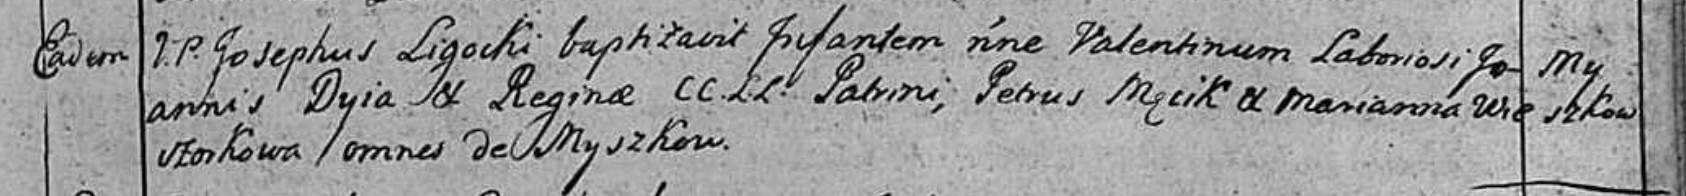 Eadem I. P. Josephus Ligocki baptizavit Infantem nne Valentinum Laboriosi Jo- My
annis Dyia & Reginæ CC. LL. Patrini, Petrus Męcik & Marianna Wie szkow
czorkowa omnes de Myszkow.